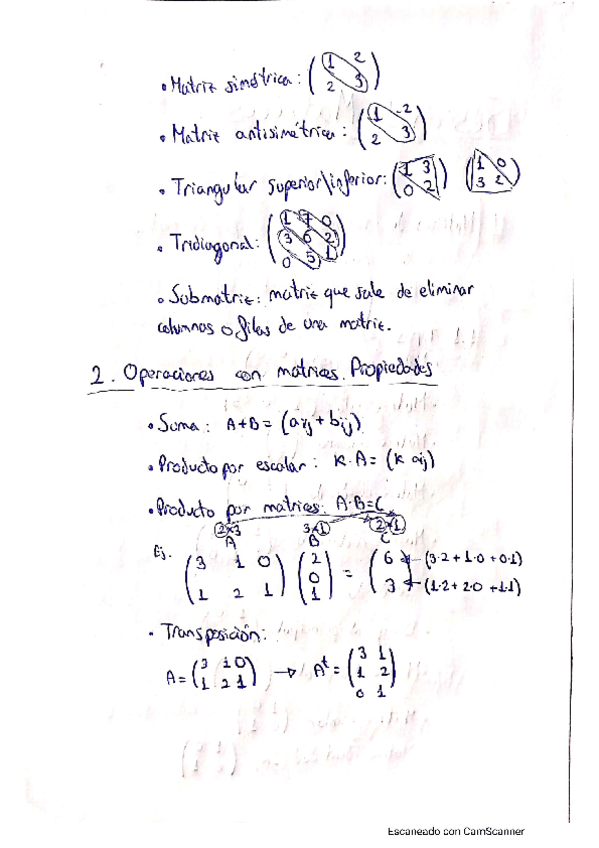 • Matriz simétrica: (1 2
2 3)
• Matriz antisimétrica: (1 -2
2 3)
• Triangular superior\inferior: (1 3 (1 0
0 2) 3 2)
• Tridiagonal: (1 7 0
3 6 2
0 5 1)
• Submatriz: matriz que sale de eliminar
columnas o filas de una matriz.
2. Operaciones con matrices. Propiedades
• Suma: A+B = (aij + bij)
• Producto por escalar: K·A = (K aij)
• Producto por matrices: A·B=C
2x3 3x1 2x1
A B C
Ej. (3 1 0 (2 = (6 ← (3·2+1·0+0·1)
0
1 2 1) 1) 3) ← (1·2+2·0+1·1)
• Transposición:
A = (3 1 0 → Aᵗ = (3 1
1 2 1) 1 2
0 1)
Escaneado con CamScanner